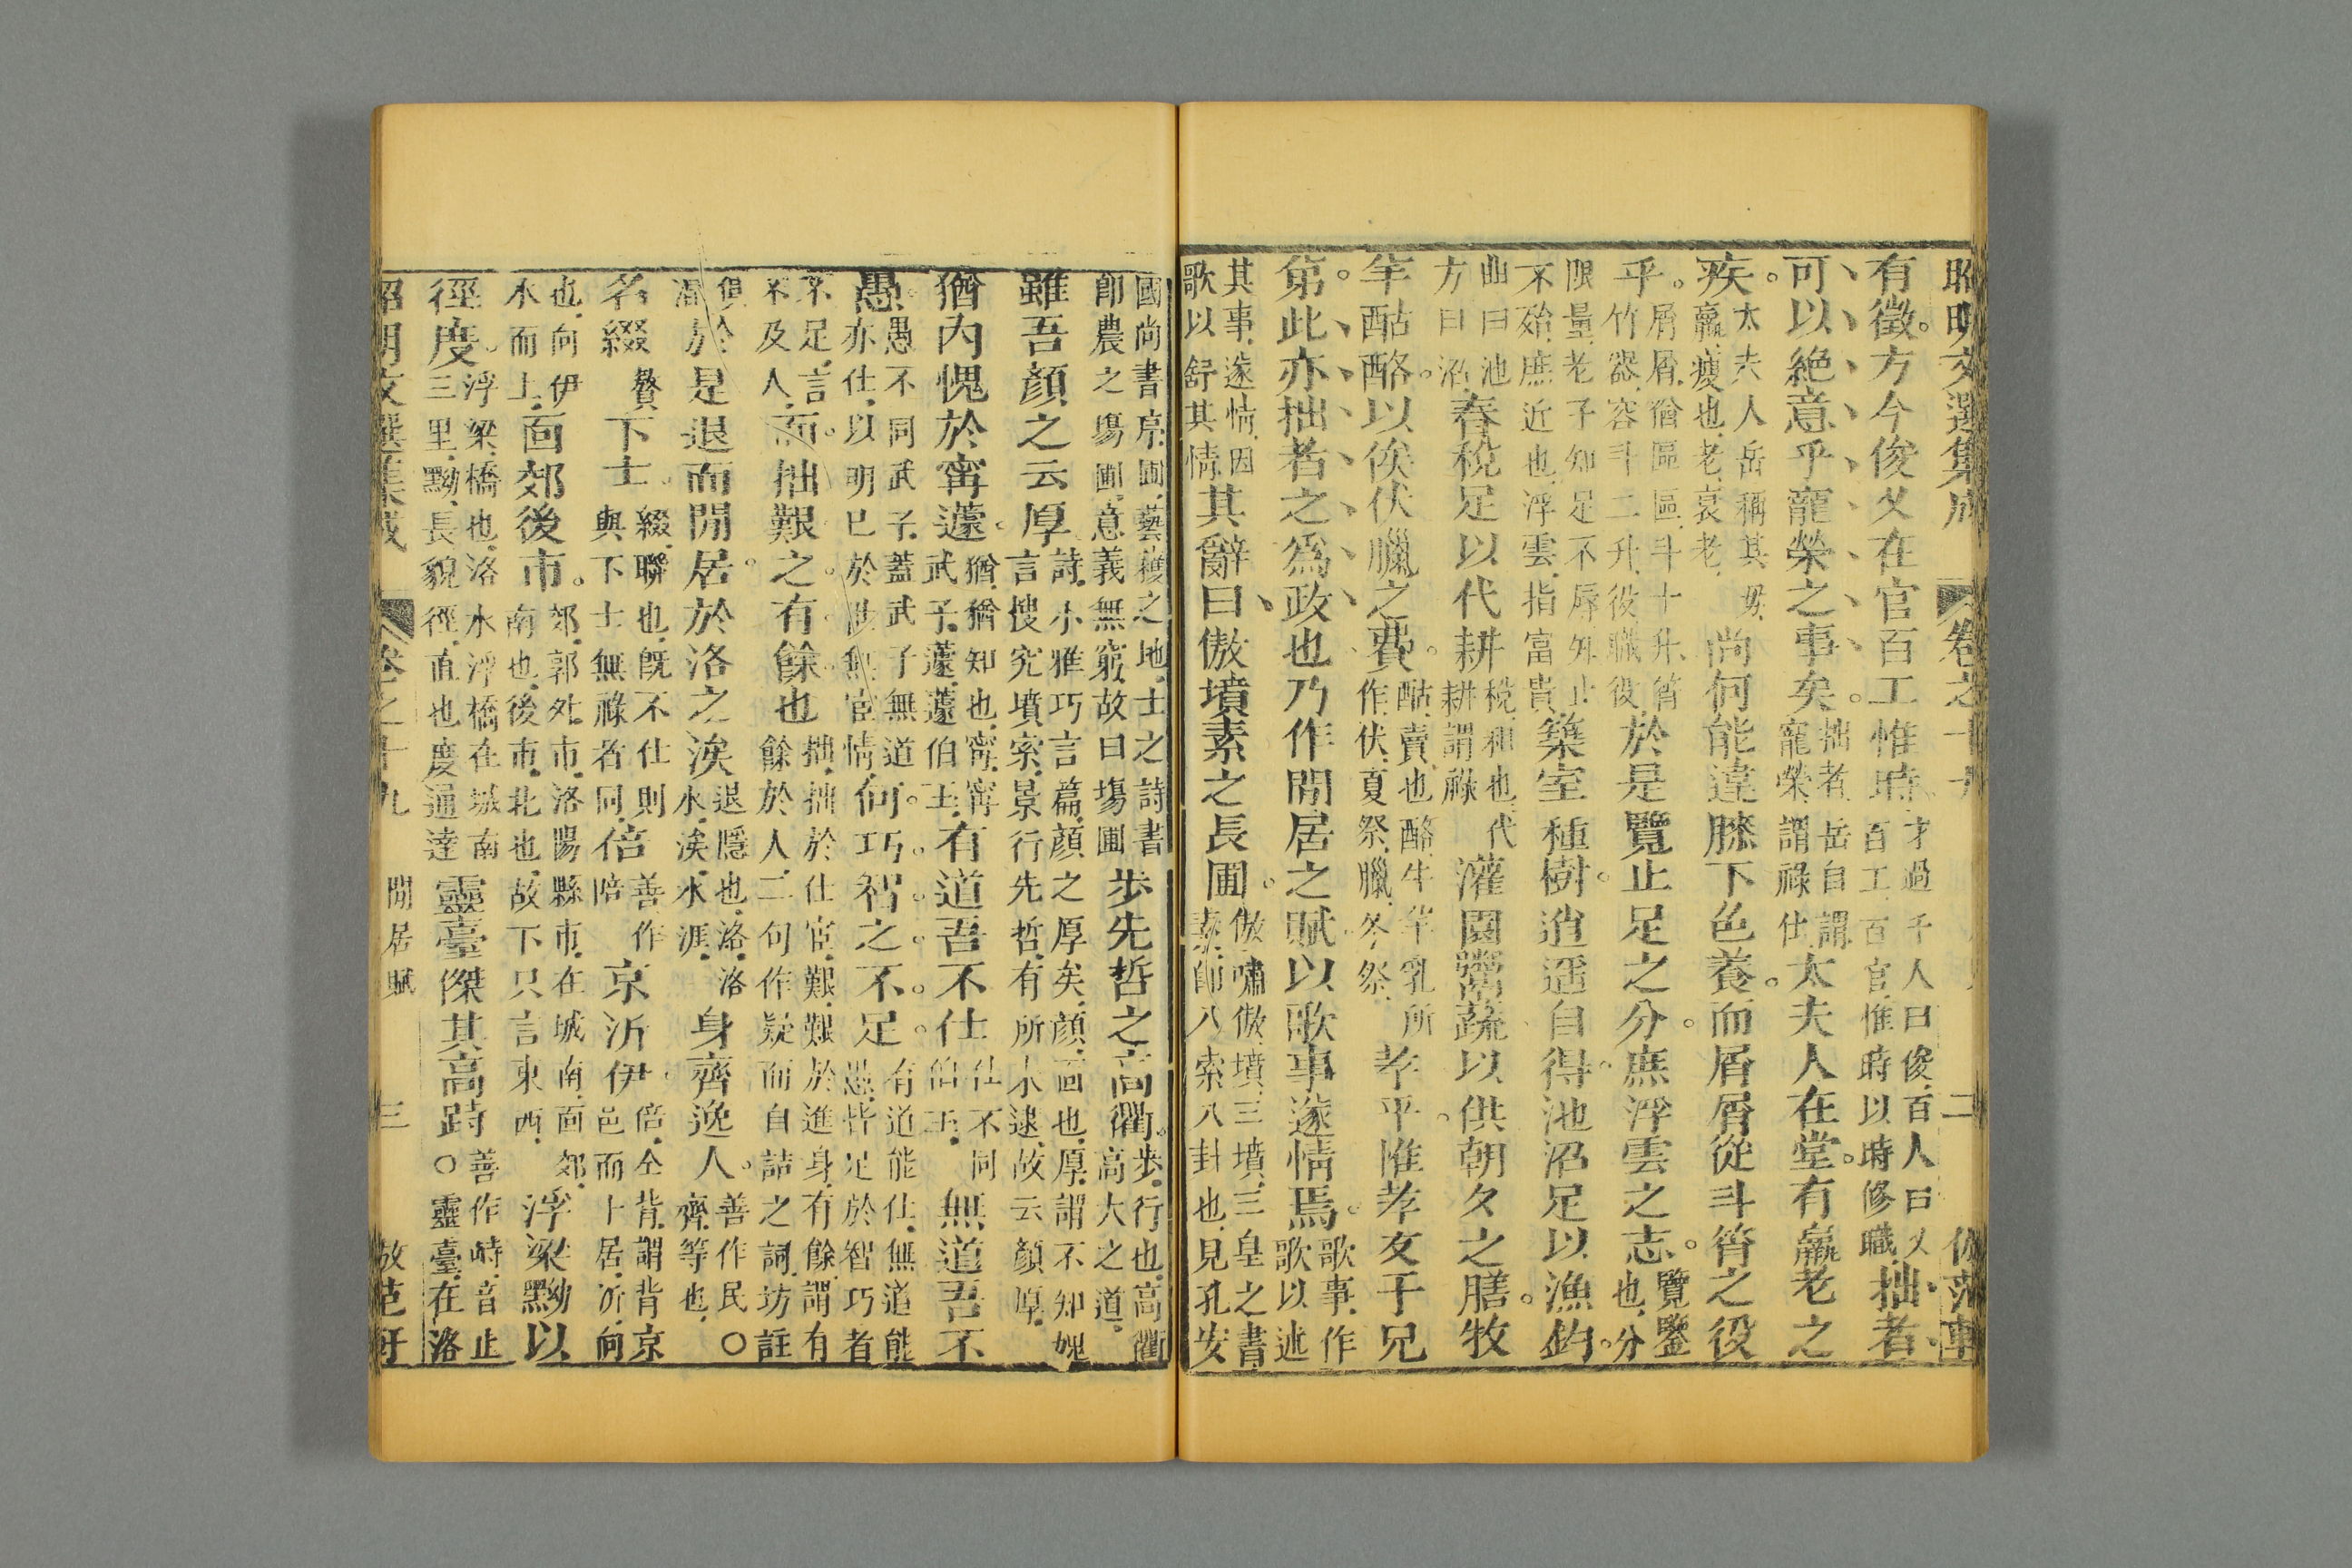 昭明文選集成 卷之十九 二 仿范軒
有徵。方今俊乂在官百工惟時才過千人曰俊百人曰乂百工百官惟時以時修職拙者
可以絶意乎寵榮之事矣。拙者岳自謂寵榮謂祿仕太夫人在堂。有羸老之
疾。太夫人岳稱其母羸瘦也老衰老尚何能違膝下色養。而屑屑從斗筲之役
乎。屑屑猶區區斗十升筲竹器容斗二升役職役於是覽止足之分。庶浮雲之志。覽鑒也分
限量老子知足不辱知止不殆庶近也浮雲指富貴築室種樹。逍遥自得。池沼足以漁釣。
曲曰池方曰沼舂稅足以代耕稅租也代耕謂祿灌園鬻蔬以供朝夕之膳。牧
羊酤酪。以俟伏臘之費。酤賣也酪牛羊乳所作伏夏祭臘冬祭孝乎。惟孝友于兄
第。此亦拙者之爲政也乃作閒居之賦以歌事遂情焉。歌事作歌以述
其事遂情因歌以舒其情其辭曰傲墳素之長圃。傲嘯傲墳三墳三皇之書素即八索八卦也見孔安
國尚書序圃藝穫之地士之詩書即農之塲圃意義無窮故曰塲圃步先哲之高衢。步行也高衢高大之道
雖吾顏之云厚詩小雅巧言篇顏之厚矣顏面也厚謂不知媿言搜究墳索景行先哲有所未逮故云顏厚
猶內愧於甯蘧。猶猶知也甯甯武子蘧蘧伯玉有道吾不仕仕不同伯玉無道吾不
愚。愚不同武子蓋武子無道亦仕以明已於世無宦情何。巧智之不足。有道能仕無道能愚皆足於智巧者
不足言不及人而拙艱之有餘也拙拙於仕宦艱艱於進身有餘謂有餘於人二句作疑而自詰之詞坊註
俱混於是退而閒居。於洛之涘退隱也洛洛水涘水涯身齊逸人。善作民○齊等也
名綴贅下士。綴聯也旣不仕則與下士無祿者同倍善作陪京泝伊。倍仝背謂背京邑而卜居泝向
也向伊水而上面郊後市。郊郭外市洛陽縣市在城南面郊南也後市北也故下只言東西浮梁黝以
徑度。浮梁橋也洛水浮橋在城南三里黝長貌徑直也度通達靈臺傑其高跱善作峙音止○靈臺在洛
昭明文選集成 卷之十九 閒居賦 三 仿范軒